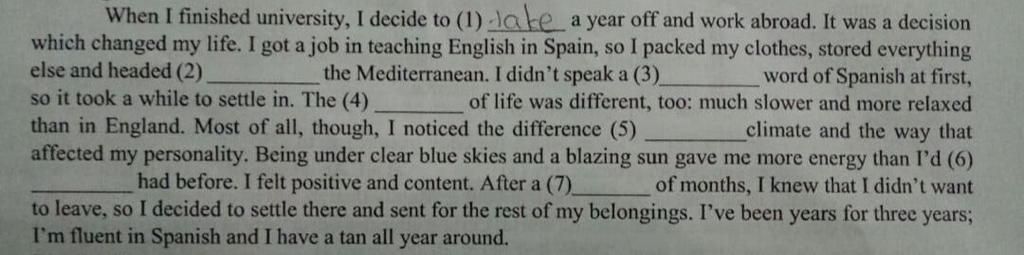 When I finished university, I decide to (1) take a year off and work abroad. It was a decision
which changed my life. I got a job in teaching English in Spain, so I packed my clothes, stored everything
else and headed (2) __________ the Mediterranean. I didn't speak a (3)__________ word of Spanish at first,
so it took a while to settle in. The (4) _________ of life was different, too: much slower and more relaxed
than in England. Most of all, though, I noticed the difference (5) __________ climate and the way that
affected my personality. Being under clear blue skies and a blazing sun gave me more energy than I'd (6)
__________ had before. I felt positive and content. After a (7)________ of months, I knew that I didn't want
to leave, so I decided to settle there and sent for the rest of my belongings. I've been years for three years;
I'm fluent in Spanish and I have a tan all year around.